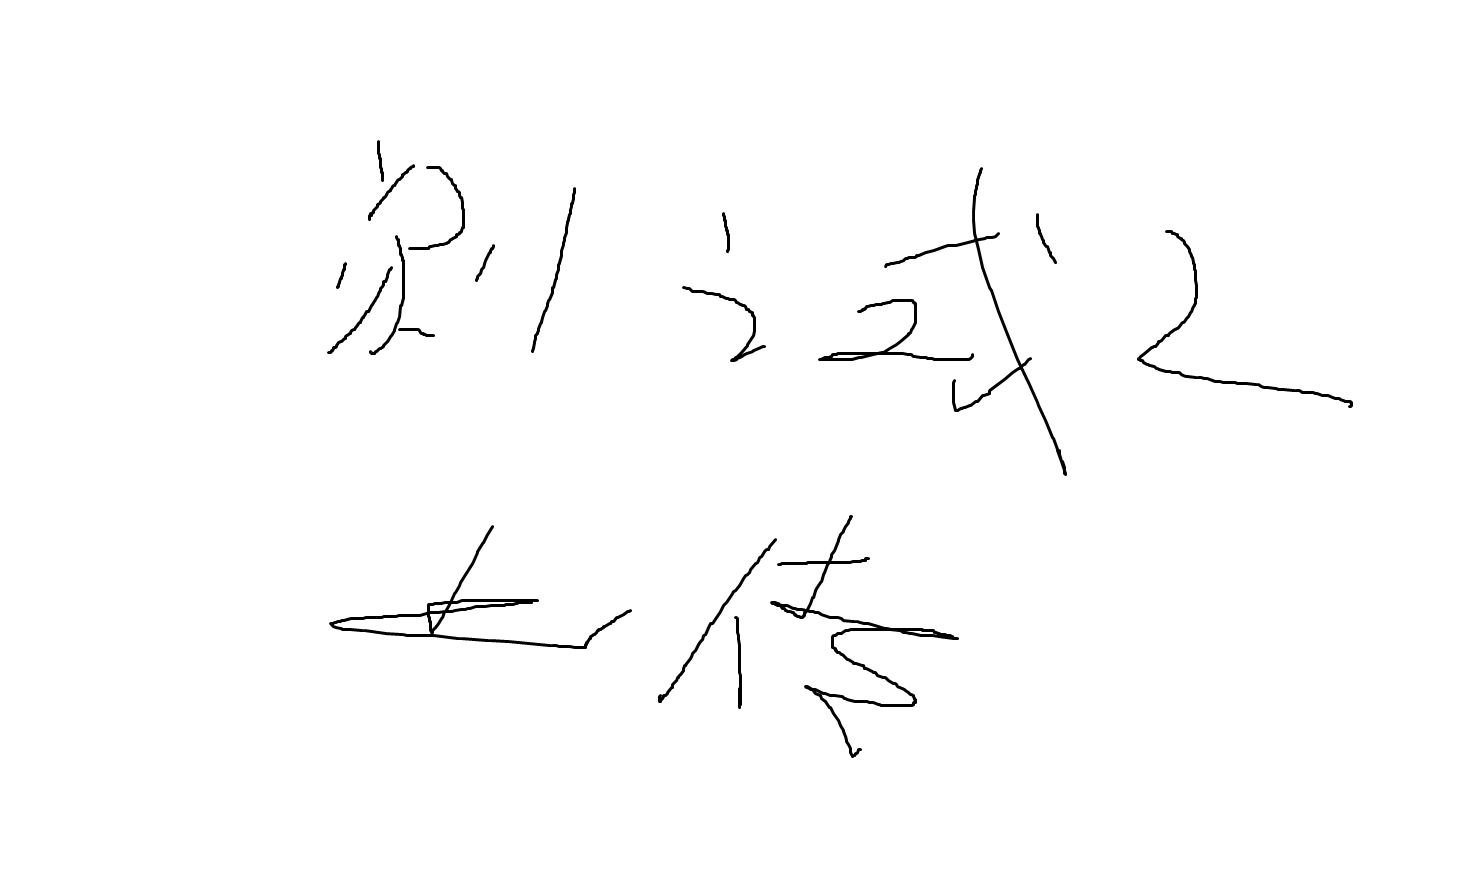 测试2
上传